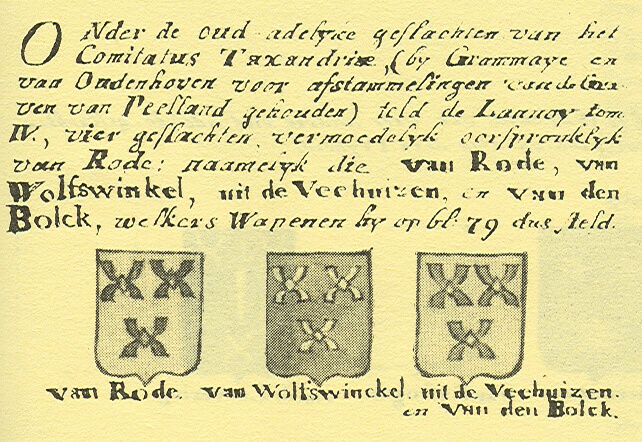 ONder de oud adelyke geslachten van het
Comitatus Taxandriæ, (by Grammaye en
van Oudenhoven voor afstammelingen van de Gra-
ven van Peelland gehouden) teld de Lannoy tom
IV., vier geslachten vermoedelyk oorspronklyk
van Rode: naamelyk die van Rode, van
Wolfswinkel, uit de Veehuizen, en van den
Bolck, welkers Wapenen hy op bl: 79 dus steld.
van Rode. van Wolfswinckel. uit de Veehuizen.
en van den Bolck.